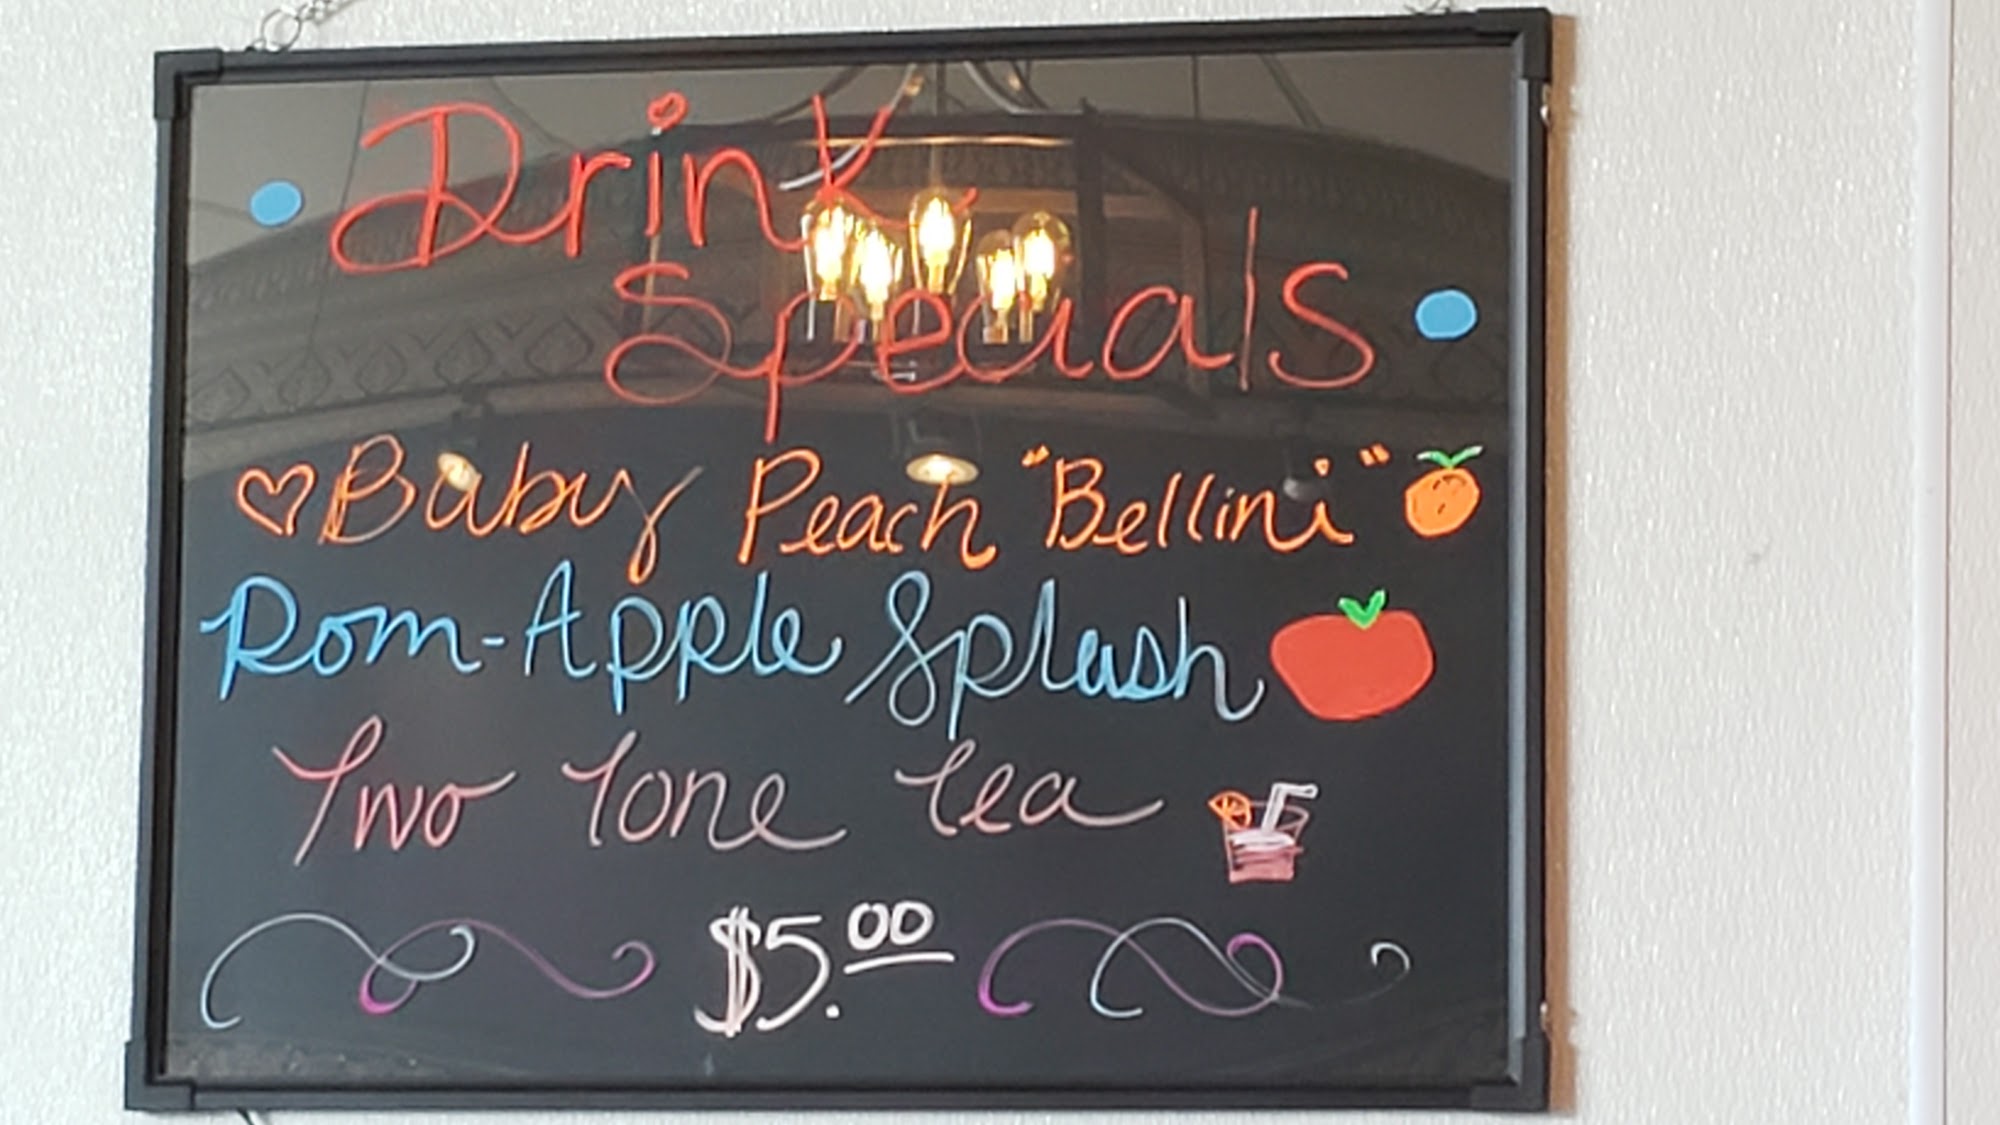 Drink
Specials
Baby Peach "Bellini"
Pom-Apple Splash
Two Tone Tea
$5.00